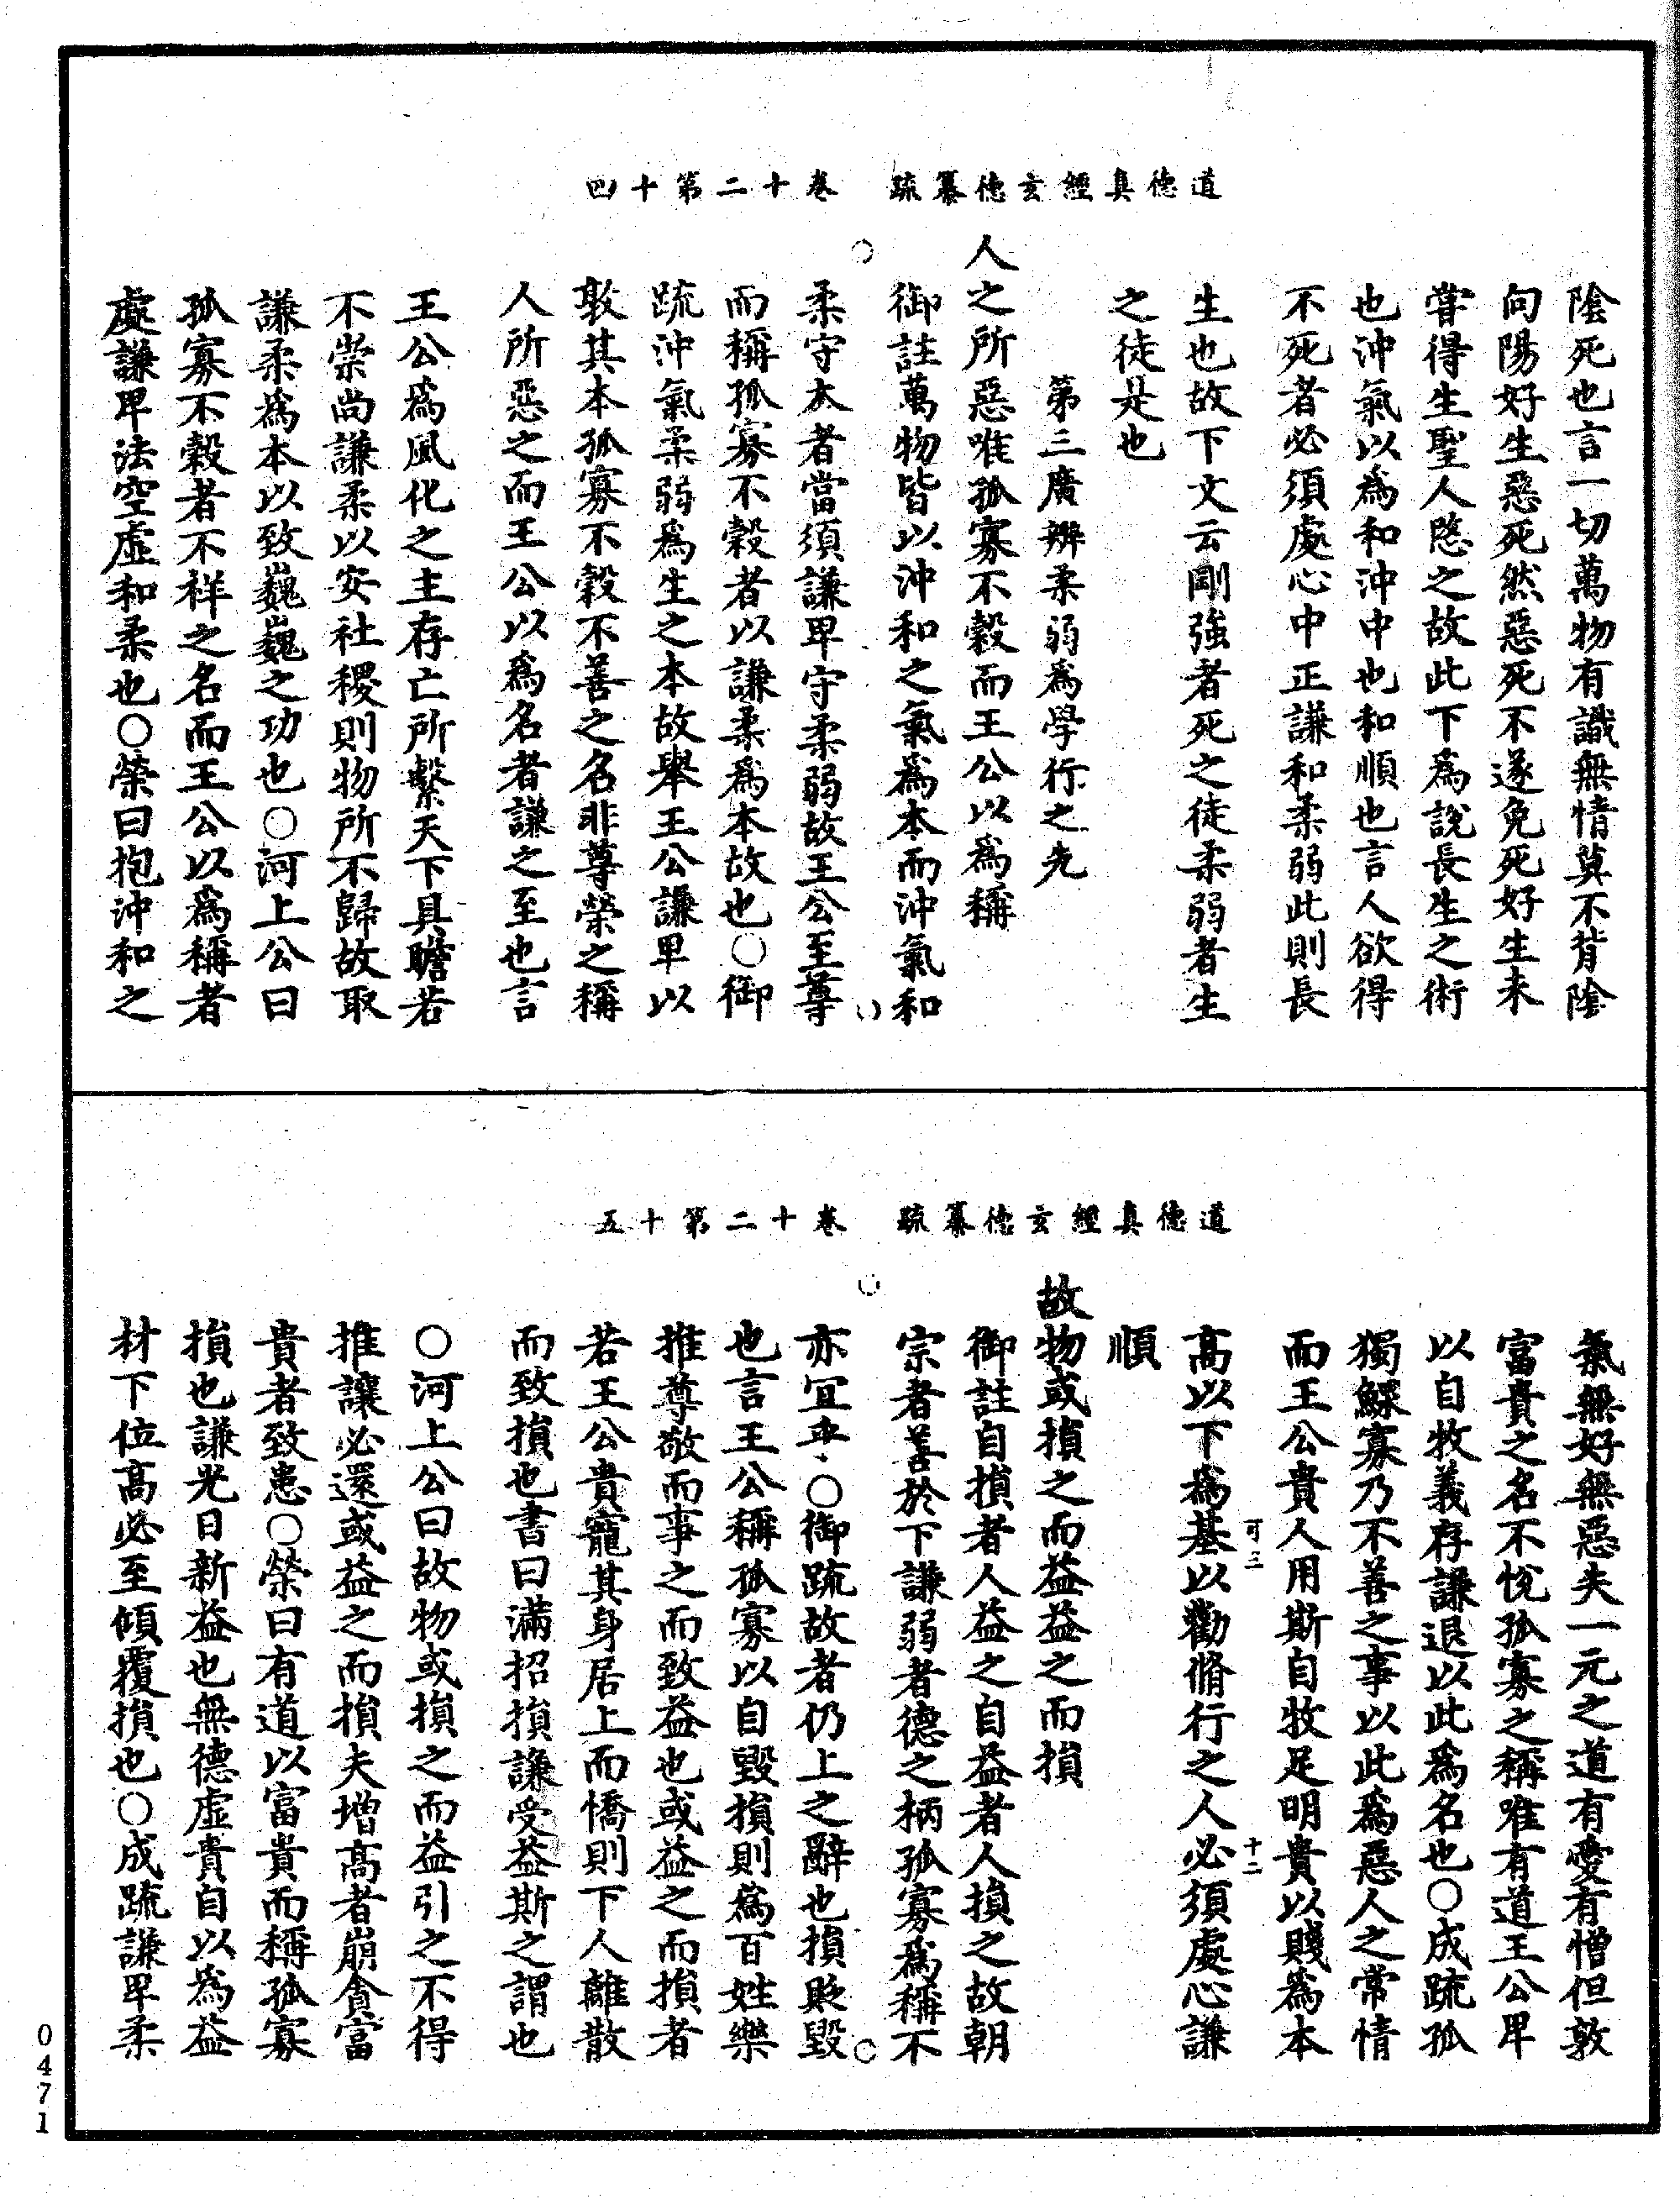 道德真經玄德纂疏　卷十二第十四
陰死也言一切萬物有識無情莫不背陰
向陽好生惡死然惡死不遂免死好生未
甞得生聖人愍之故此下為說長生之術
也沖氣以為和沖中也和順也言人欲得
不死者必須處心中正謙和柔弱此則長
生也故下文云剛強者死之徒柔弱者生
之徒是也
第三廣辨柔弱為學行之先
人之所惡唯孤寡不穀而王公以為稱
御註萬物皆以沖和之氣為本而沖氣和
柔守本者當須謙卑守柔弱故王公至尊
而稱孤寡不穀者以謙柔為本故也○御
疏沖氣柔弱為生之本故舉王公謙卑以
敦其本孤寡不穀不善之名非尊榮之稱
人所惡之而王公以為名者謙之至也言
王公為風化之主存亡所繫天下具瞻若
不崇尚謙柔以安社稷則物所不歸故取
謙柔為本以致巍巍之功也○河上公曰
孤寡不穀者不祥之名而王公以為稱者
處謙卑法空虛和柔也○榮曰抱沖和之
道德真經玄德纂疏　卷十二第十五
氣無好無惡失一元之道有愛有憎但敦
富貴之名不悅孤寡之稱唯有道王公卑
以自牧義存謙退以此為名也○成疏孤
獨鰥寡乃不善之事以此為惡人之常情
而王公貴人用斯自牧足明貴以賤為本
可三　十二
高以下為基以勸脩行之人必須處心謙
順
故物或損之而益益之而損
御註自損者人益之自益者人損之故朝
宗者善於下謙弱者德之柄孤寡為稱不
亦宜乎○御疏故者仍上之辭也損貶毀
也言王公稱孤寡以自毀損則為百姓樂
推尊敬而事之而致益也或益之而損者
若王公貴寵其身居上而憍則下人離散
而致損也書曰滿招損謙受益斯之謂也
○河上公曰故物或損之而益引之不得
推讓必還或益之而損夫增高者崩貪富
貴者致患○榮曰有道以富貴而稱孤寡
損也謙光日新益也無德虛貴自以為益
材下位高必至傾覆損也○成疏謙卑柔
0471